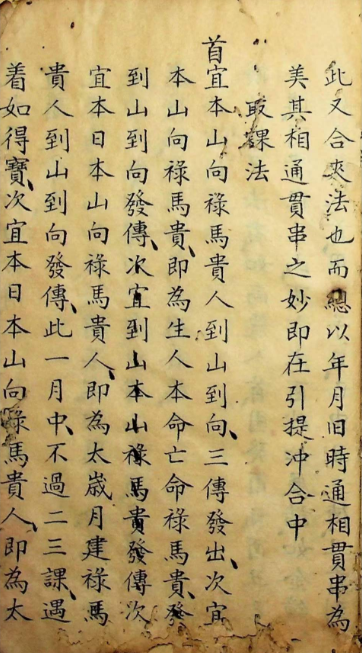 此又合夾法也而總以年月旧時通相貫串為
美其相通貫串之妙即在引提冲合中
取課法
首宜本山向祿馬貴人到山到向、三傳發出、次宜
本山向祿馬貴、即為生人本命亡命祿馬貴、發
到山到向發傳、次宜到山本山祿馬貴發傳、次
宜本日本山向祿馬貴人、即為太歲月建祿馬
貴人到山到向發傳、此一月中、不過二三課、遇
着如得寶、次宜本日本山向祿馬貴人、即為太